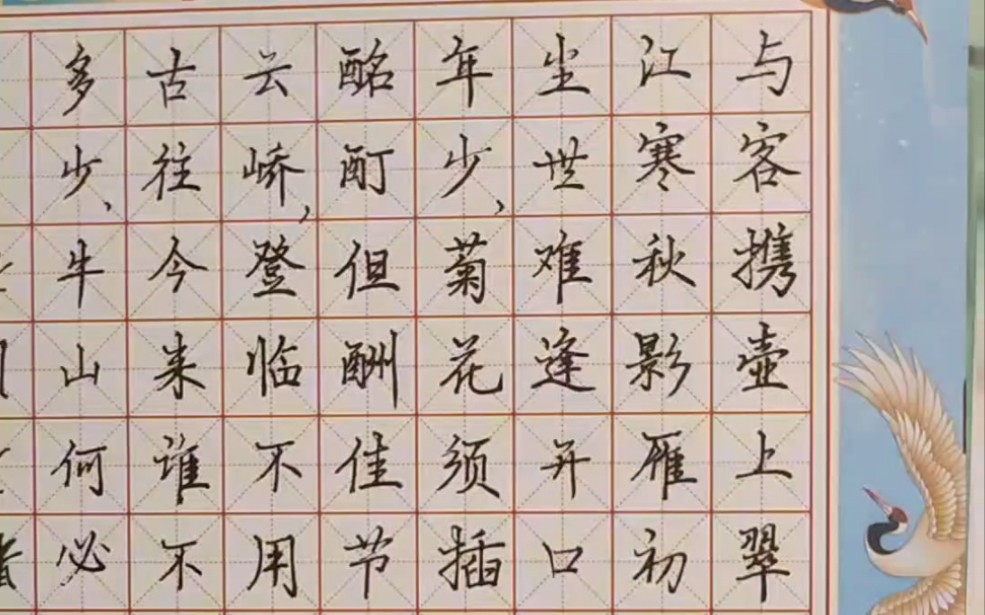 与客携壶上翠
江寒秋影雁初
尘世难逢开口
年少,菊花须插
酩酊但酬佳节
云峤,登临不用
古往今来谁不
多少、牛山何必